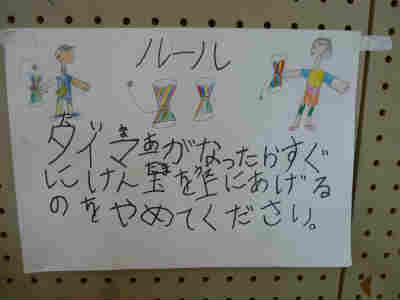 ルール
タイマあがなったらすぐ
にけん玉を空にあげる
のをやめてください。